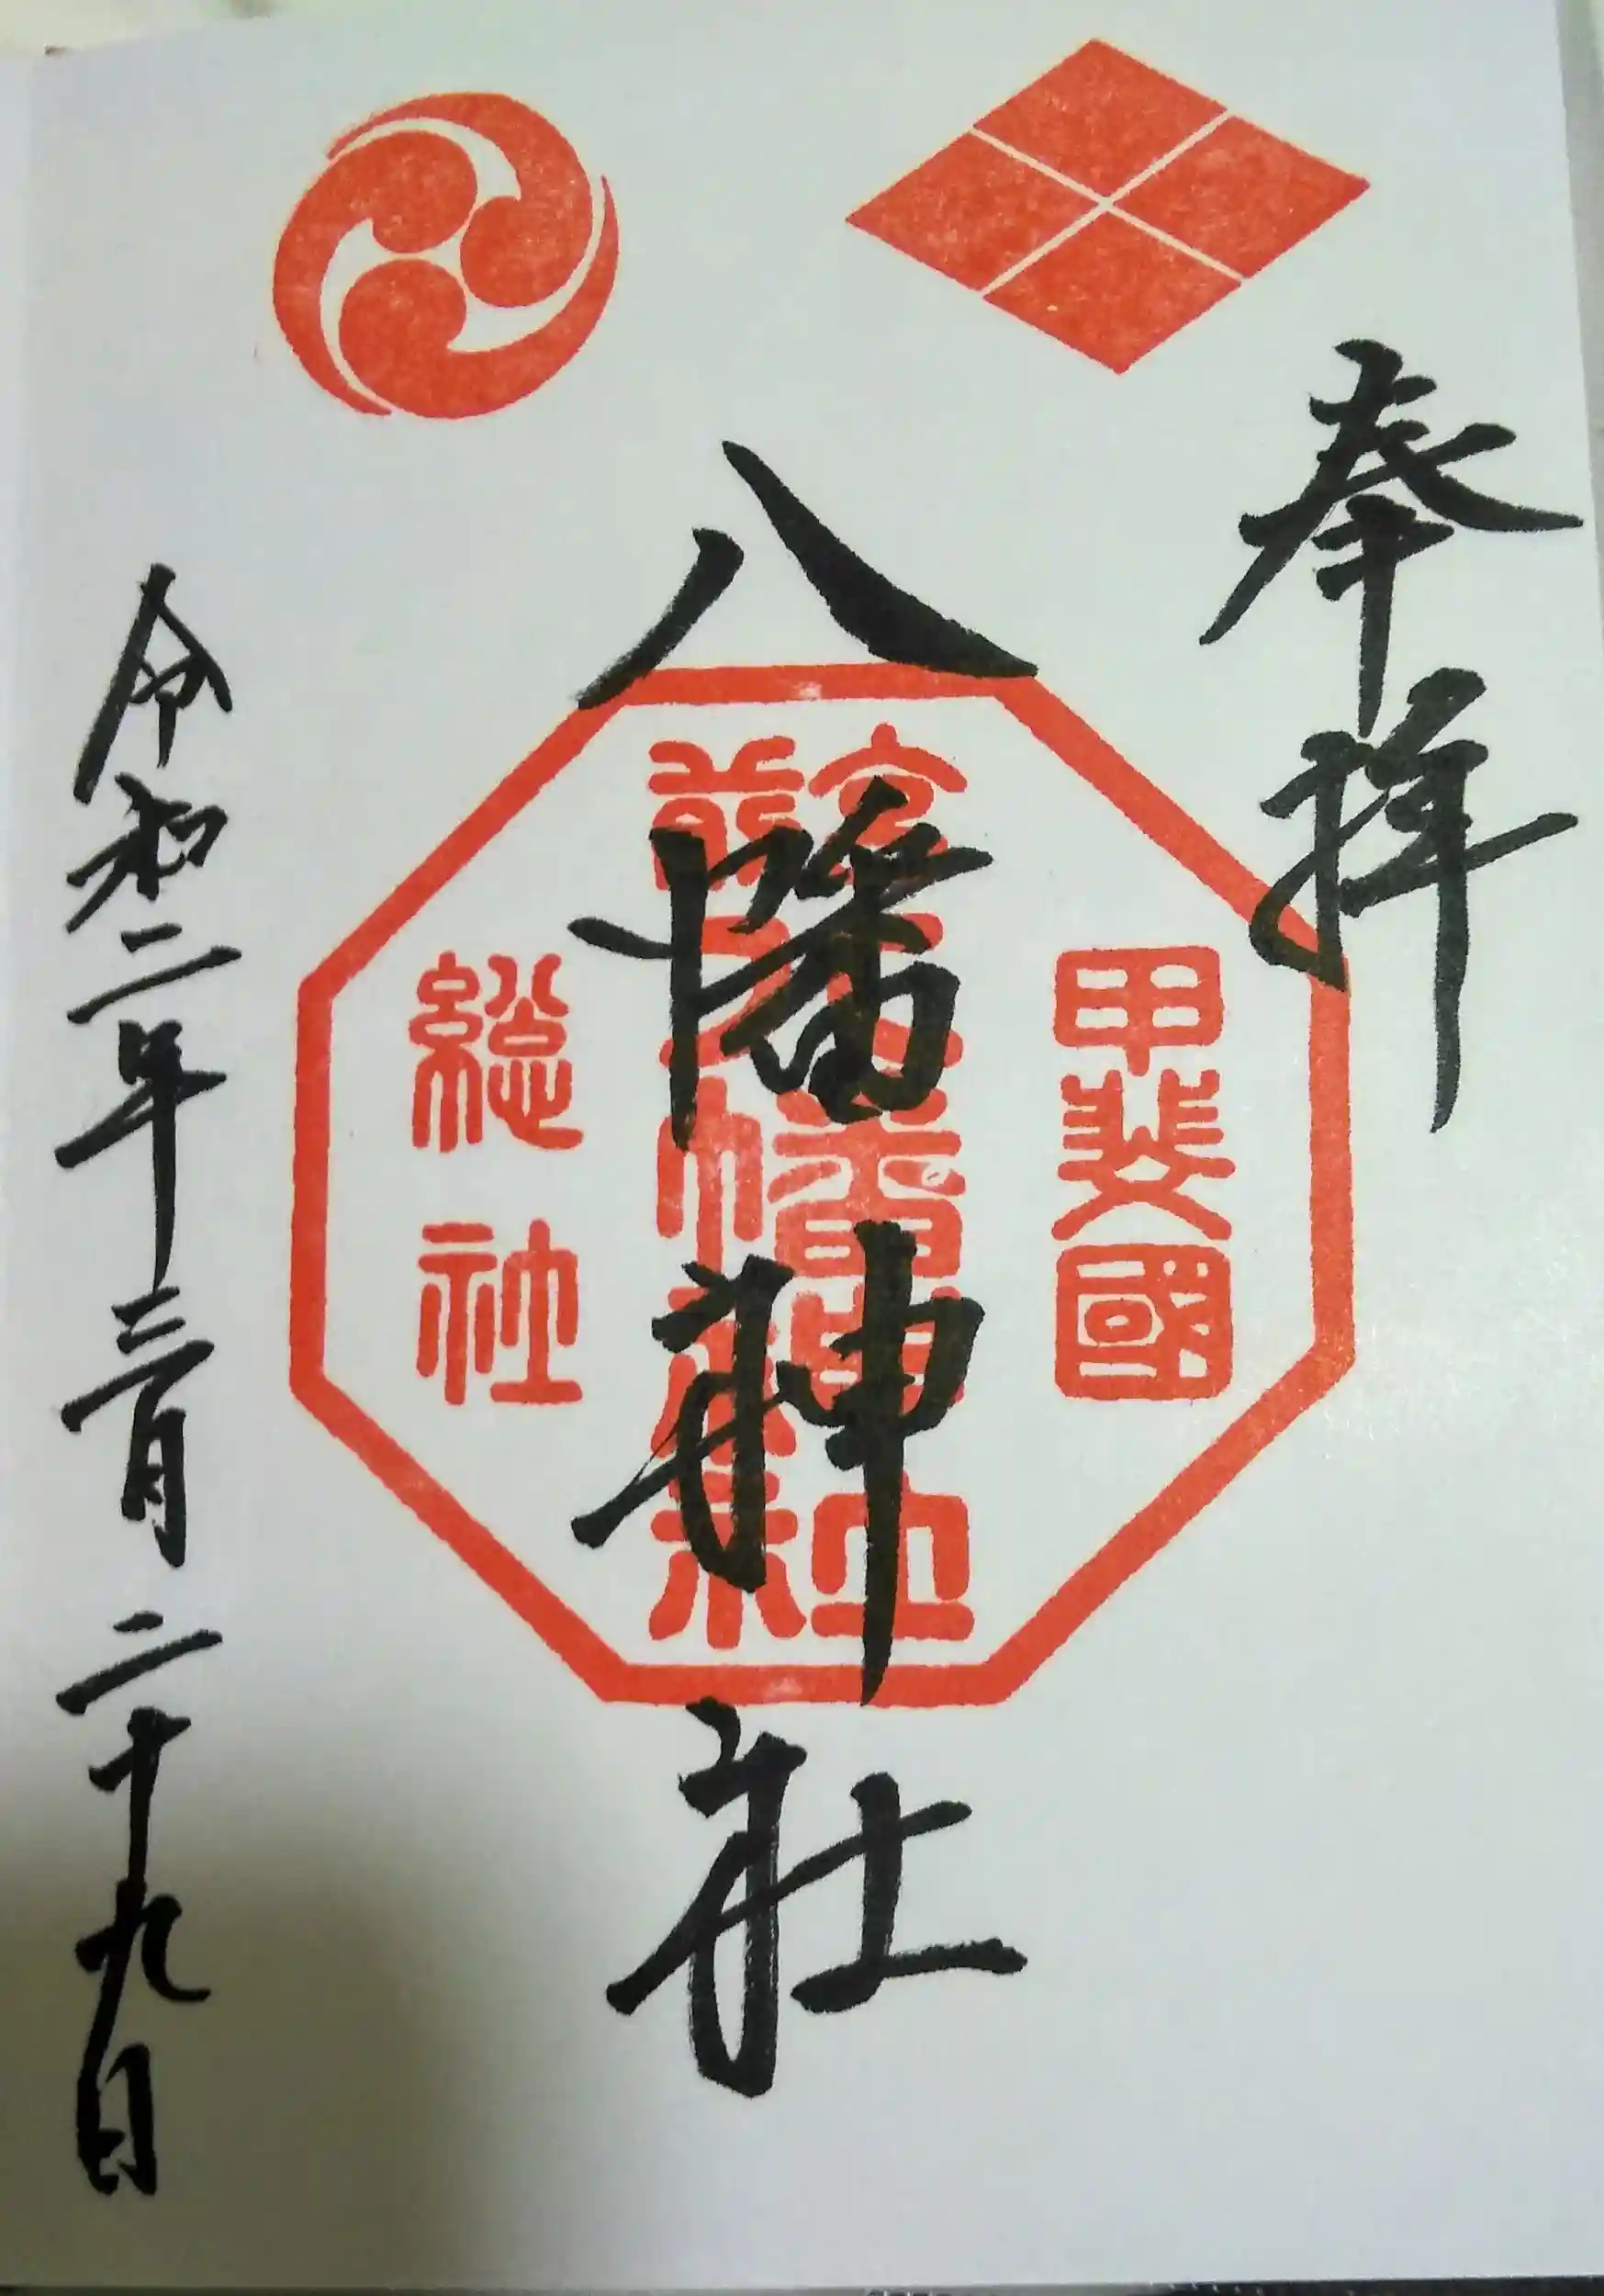 奉拝
甲斐國
八幡神社
総社
令和二年三月二十九日